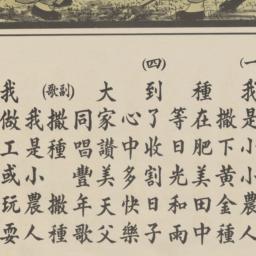 (一)
我是小小農人
撒下黃金種
種在肥美田中
等日光和雨
(四)
到了收割日子
心中多快樂
大家讚美天父
同唱豐年歌
(副歌)
撒種 撒種
我是小農人
我做工或玩耍